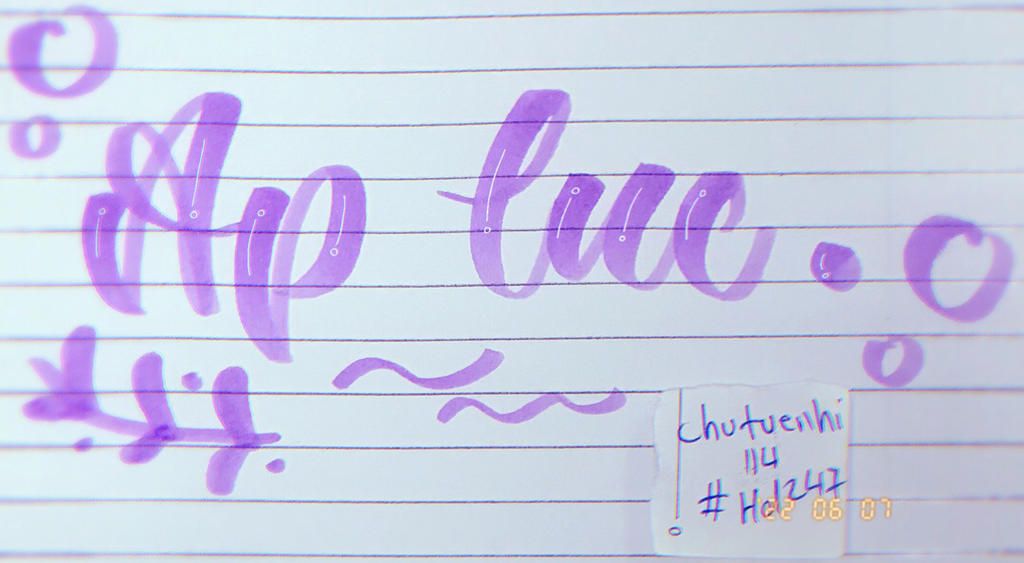 Ap luc.
chutuenhi
114
#Hd247
'22 06 07